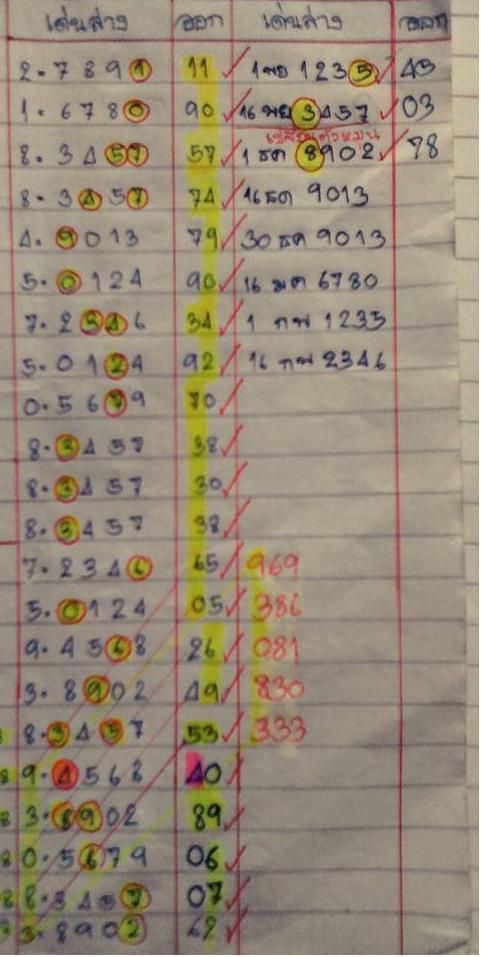 เด่นล่าง ออก เด่นล่าง ออก
2. 7 8 9 1 11 ✓ 1 พย 1 2 3 5 ✓ 45
1. 6 7 8 0 90 ✓ 16 พย 3 4 5 7 ✓ 03
8. 3 4 5 7 57 ✓ 1 ธค 8 9 0 2 ✓ 78
8. 3 4 5 7 74 ✓ 16 ธค 9 0 1 3
4. 9 0 1 3 79 ✓ 30 ธค 9 0 1 3
5. 0 1 2 4 90 ✓ 16 มค 6 7 8 0
7. 2 3 4 6 34 ✓ 1 กพ 1 2 3 5
5. 0 1 2 4 92 ✓ 16 กพ 2 3 4 6
0. 5 6 7 9 70 ✓
8. 3 4 5 7 38 ✓
8. 3 4 5 7 30 ✓
8. 3 4 5 7 38 ✓
7. 2 3 4 6 65 ✓ 969
5. 0 1 2 4 05 ✓ 386
9. 4 5 6 8 26 ✓ 081
3. 8 9 0 2 49 ✓ 830
8. 3 4 5 7 53 ✓ 333
9. 4 5 6 8 40 ✓
3. 8 9 0 2 89 ✓
0. 5 6 7 9 06 ✓
8. 3 4 5 7 07 ✓
3. 8 9 0 2 62 ✓